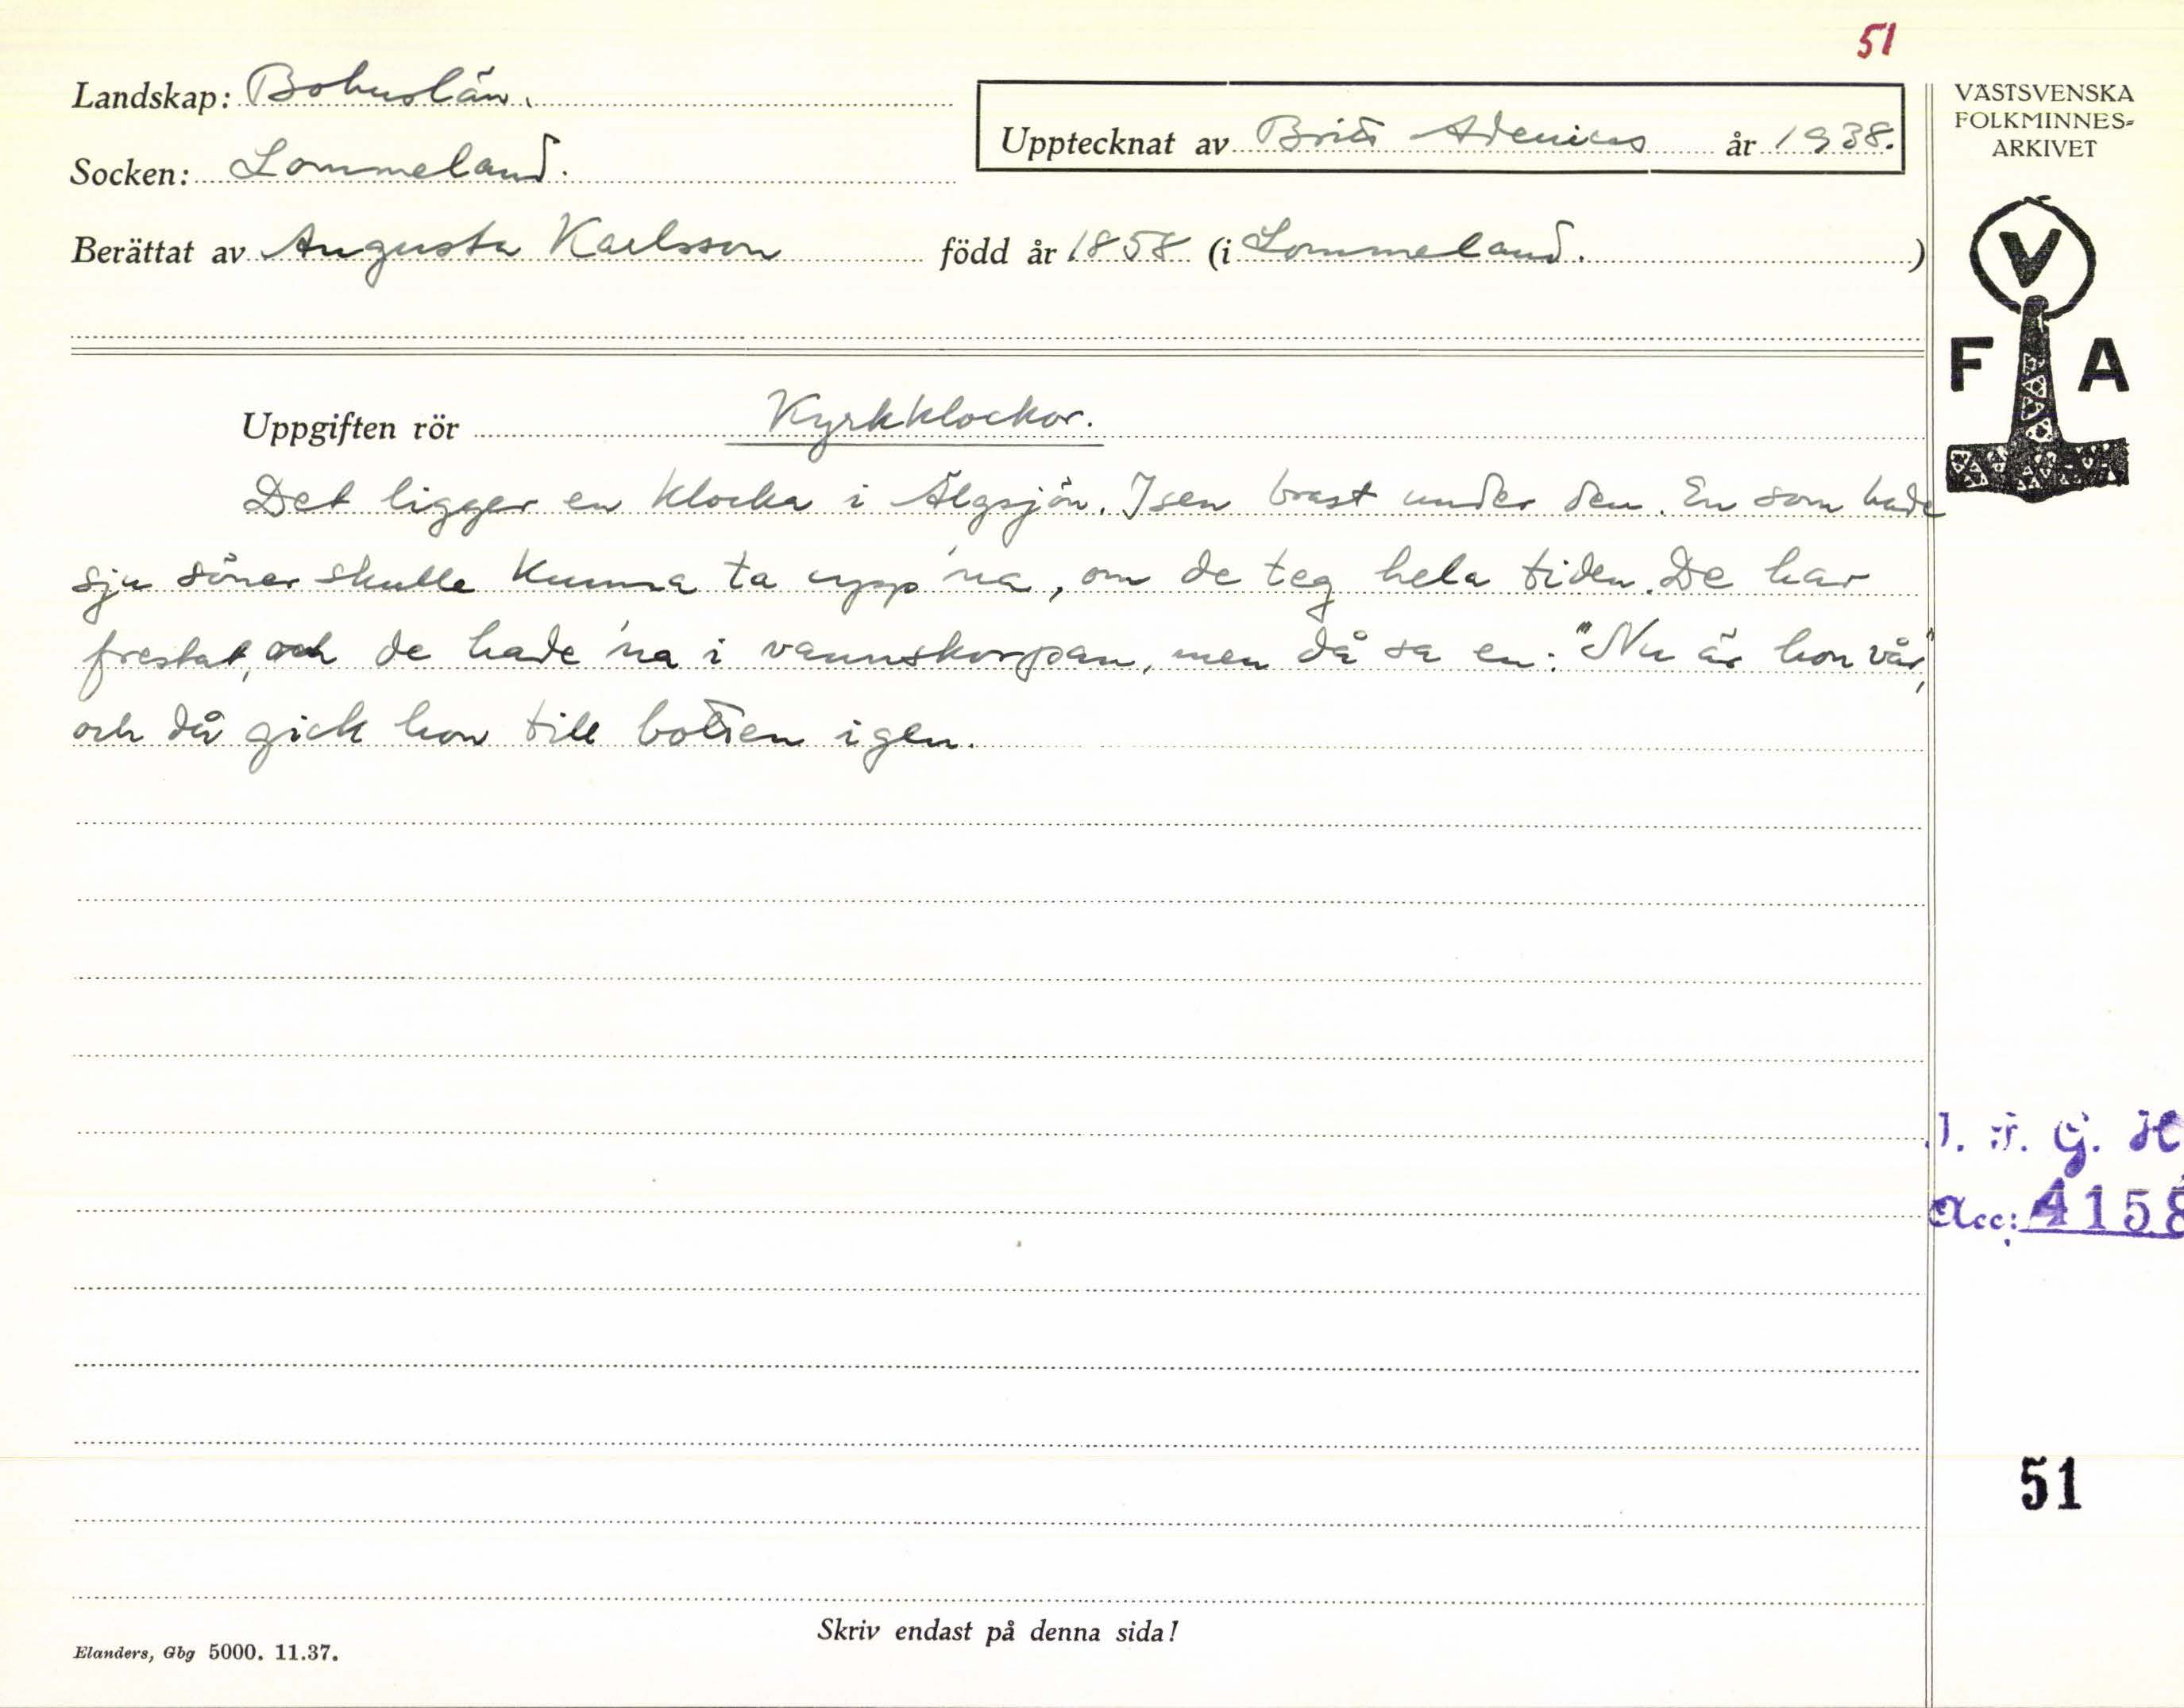 51
Landskap: Bohuslän.
Upptecknat av Britt Adenius år 1938.
Socken: Lommeland.
Berättat av Augusta Karlsson född år 1858 (i Lommeland. )
VÄSTSVENSKA
FOLKMINNES-
ARKIVET
V
F A
Uppgiften rör Kyrkklockor.
Det ligger en klocka i Älgsjön. Isen brast under den. En som hade
sju söner skulle kunna ta upp'na, om de teg hela tiden. De har
frestat, och de hade 'na i vannskorpan, men då sa en: "Nu är hon vår",
och då gick hon till botten igen.
Acc: 4158
51
Skriv endast på denna sida!
Elanders, Gbg 5000. 11.37.